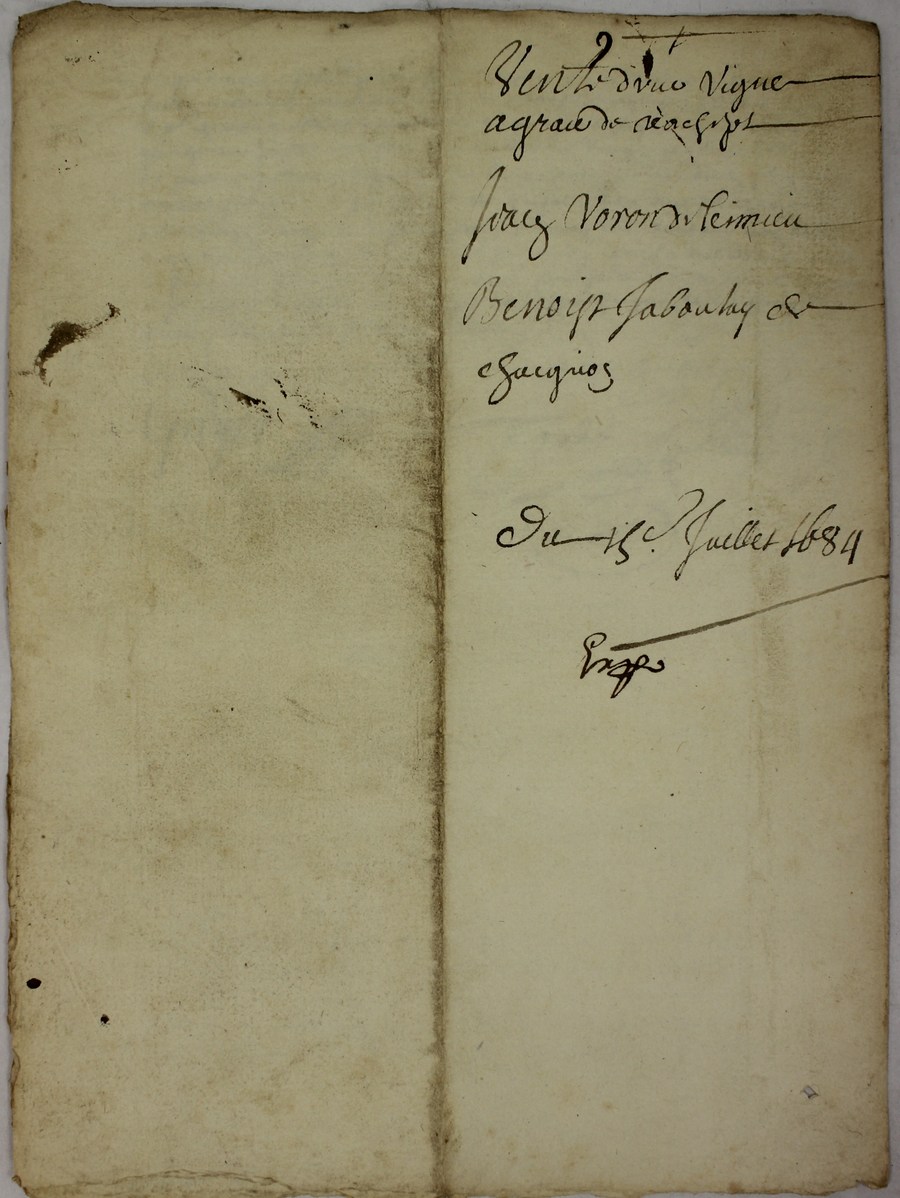 Vente d'vne Vigne
a grace de reachept
Voron de
Benoist Jaboulay de
chacgnos
Du 15e. Juillet 1684
Expe